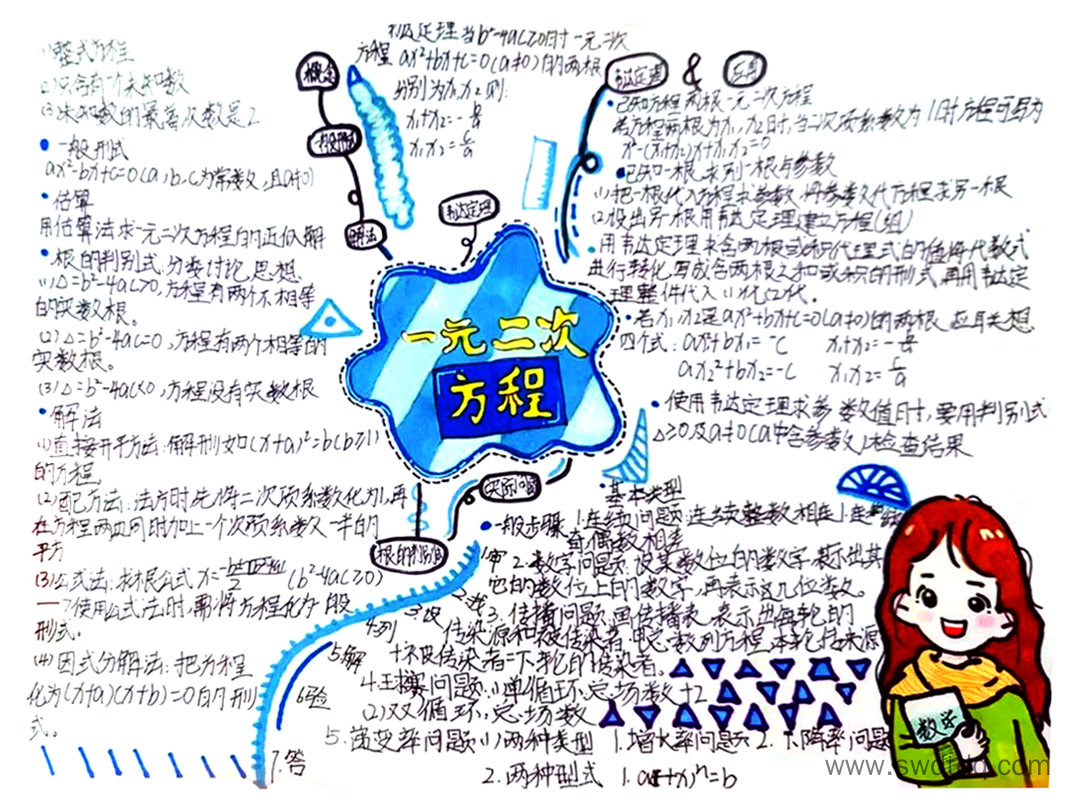 一元二次
方程
概念
一般形式
解法
韦达定理
韦达定理
&
应用
实际问题
根的判别式
(1)整式方程
(2)只含有一个未知数
(3)未知数的最高次数是2
•一般形式
ax²-bx+c=0(a,b,c为常数,且a≠0)
•估算
用估算法求一元二次方程的正似解
•根的判别式:分类讨论思想
(1)△=b²-4ac>0,方程有两个不相等
的实数根。
(2)△=b²-4ac=0,方程有两个相等的
实数根。
(3)△=b²-4ac<0,方程没有实数根
•解法
(1)直接开平方法:解形如(x+a)²=b(b≥1)
的方程
(2)配方法:法方时先将二次项系数化为1,再
在方程两边同时加上一个次项系数一半的
平方
(3)公式法:求根公式x= (b²-4ac≥0)
使用公式法时,需将方程化为一般
形式。
(4)因式分解法:把方程
化为(x+a)(x+b)=0的形
式。
定理当b²-4ac≥0时一元二次
方程ax²+bx+c=0(a≠0)的两根
分别为x₁,x₂则:
x₁+x₂=-b/a
x₁x₂=c/a
•已知方程两根一元二次方程
若方程两根为x₁,x₂时,当二次项系数为1时方程可写为
x²-(x₁+x₂)x+x₁x₂=0
•已知一根,求别一根与参数
(1)把一根代入方程求参数,将参数代方程求另一根
(2)设出另一根用韦达定理建立方程(组)
•用韦达定理求含两根或积代理式的值将代数式
进行转化,写成含两根之和或积的形式,再用韦达定
理整件代入(1)化(2)代.
•若x₁,x₂是ax²+bx+c=0(a≠0)的两根,应耳关想
四个式:ax₁²+bx₁=-c x₁+x₂=-b/a
ax₂²+bx₂=-c x₁x₂=c/a
•使用韦达定理求参数值时,要用判别式
△≥0及a≠0(a中含参数)检查结果
•一般步骤
1审
2找
3设
4列
5解
6验
7.答
•基本类型
1.连续问题:连续整数相连1连
奇偶数相差
2.数字问题:设某数位的数字,表示出其
它的数位上的数字,再表示这几位数。
3.传播问题:画传播表,表示出每轮的
传染源和被传染者,用总数列方程,本轮传来源
+被传染者=下轮的传染者.
4.比赛问题:(1)单循环,总场数÷2
(2)双循环,总场数
5.变率问题(1)两种类型 1.增长率问题 2.下降率问题
2.两种型式 1.a(1+x)ⁿ=b
数学